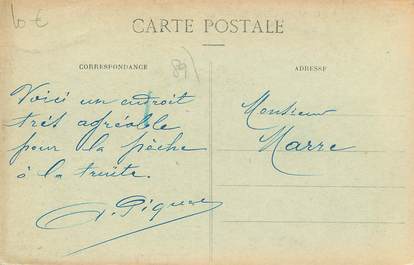 10 €
CARTE POSTALE
CORRESPONDANCE
89
ADRESSE
Voici un endroit
très agréable
pour la pêche
à la truite.
Monsieur
Marre